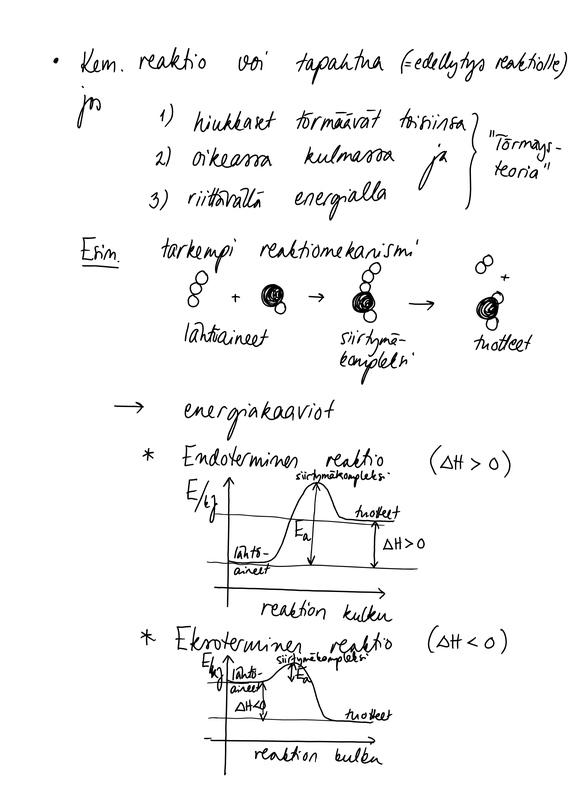 • Kem. reaktio voi tapahtua (=edellytys reaktiolle)
jos
1) hiukkaset törmäävät toisiinsa
2) oikeassa kulmassa ja
3) riittävällä energialla
"Törmäys-
teoria"
Esim. tarkempi reaktiomekanismi
+ → → +
lähtöaineet
siirtymä-
kompleksi
tuotteet
→ energiakaaviot
* Endoterminen reaktio (ΔH > 0)
E/kJ
siirtymäkompleksi
tuotteet
Ea
ΔH>0
lähtö-
aineet
reaktion kulku
* Eksoterminen reaktio (ΔH < 0)
E/kJ
siirtymäkompleksi
lähtö-
aineet
Ea
ΔH<0
tuotteet
reaktion kulku